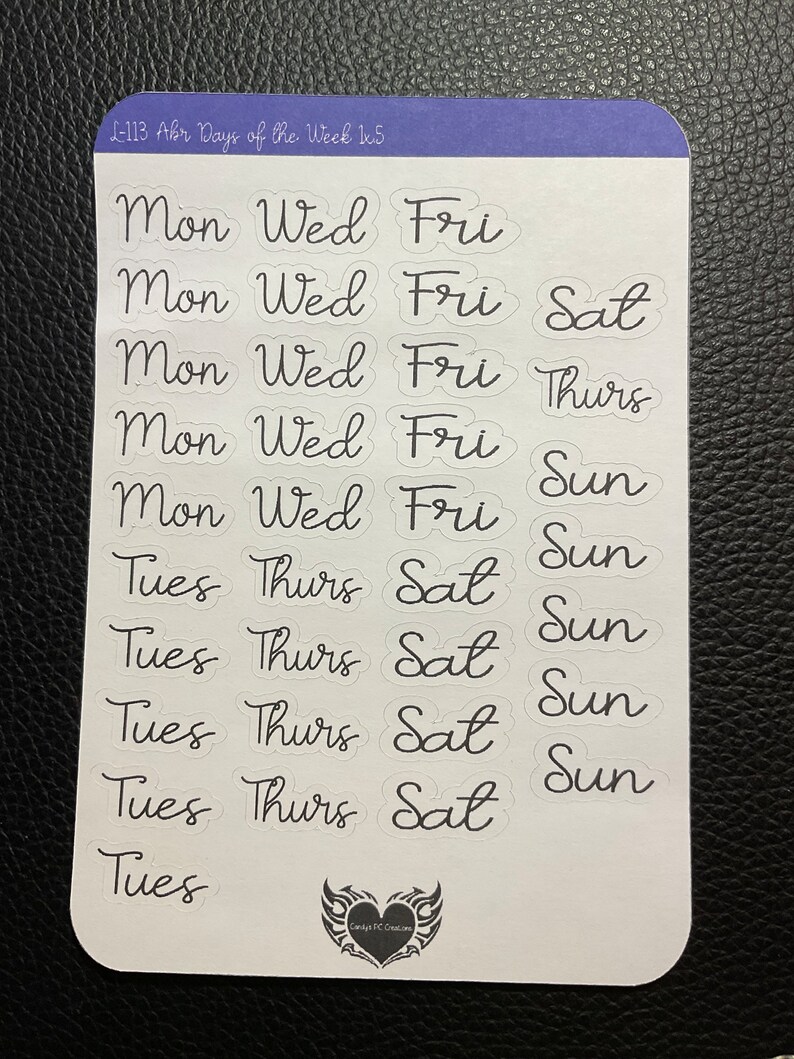 L-113 Abr Days of the Week 1x.5
Mon Wed Fri
Mon Wed Fri Sat
Mon Wed Fri Thurs
Mon Wed Fri Sun
Mon Wed Fri Sun
Tues Thurs Sat Sun
Tues Thurs Sat Sun
Tues Thurs Sat Sun
Tues Thurs Sat
Tues
Candy's PC Creations